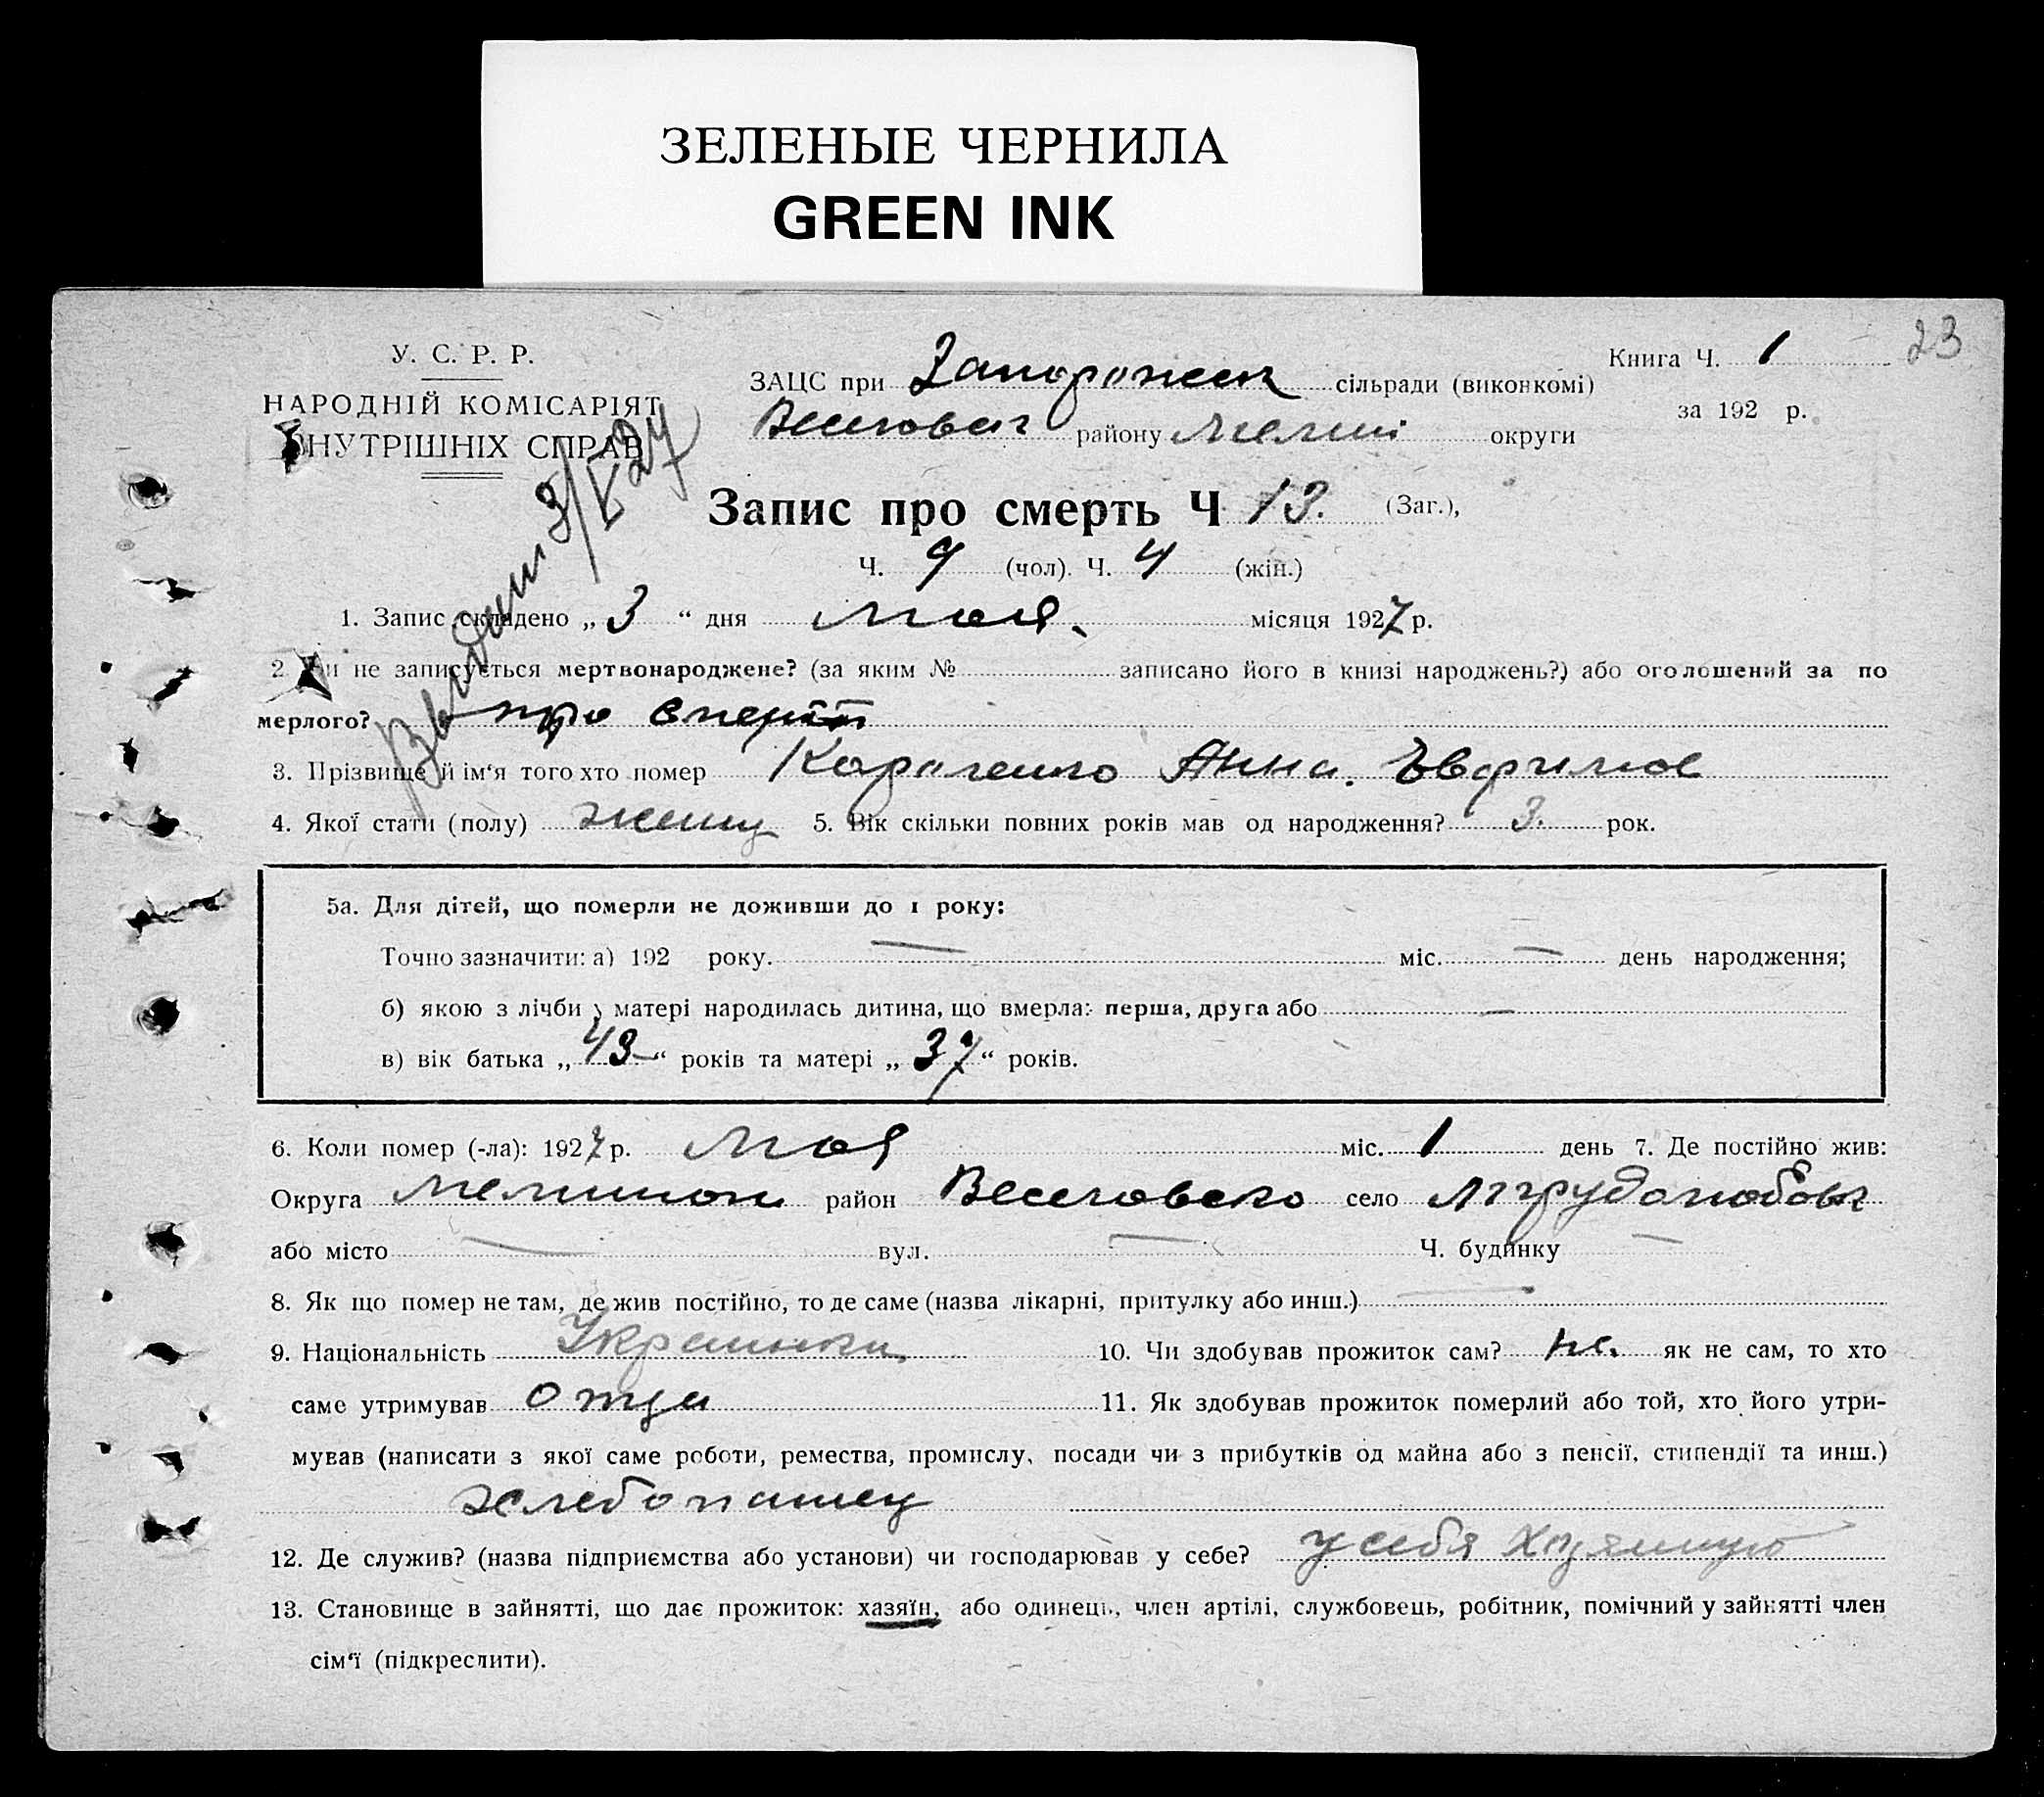 ЗЕЛЕНЫЕ ЧЕРНИЛА
GREEN INK
23
У. С. Р. Р.
НАРОДНІЙ КОМІСАРІЯТ
ВНУТРІШНІХ СПРАВ
Книга Ч. 1
за 192 р.
ЗАЦС при Запорожск сільради (виконкомі)
Веселовск району Мелит округи
Запис про смерть Ч 13. (Заг.),
Ч. 9 (чол). Ч. 4 (жін.)
1. Запис складено „ 3 “ дня мая. місяця 1927 р.
2 Чи не записується мертвонароджене? (за яким № записано його в книзі народжень?) або оголошений за по
мерлого? про смерть
3. Прізвище й ім‘я того хто помер Анна.
4. Якої стати (полу) женщ 5. Вік скільки повних років мав од народження? 3. рок.
5а. Для дітей, що померли не доживши до 1 року:
Точно зазначити: а) 192 року. — міс. — день народження;
б) якою з лічби у матері народилась дитина, що вмерла: перша, друга або —
в) вік батька „ 43 “ років та матері „ 37 “ років.
6. Коли помер (-ла): 1927 р. мая міс. 1 день 7. Де постійно жив:
Округа район Веселовско село
або місто — вул. — Ч. будинку —
8. Як що помер не там, де жив постійно, то де саме (назва лікарні, притулку або инш.) —
9. Національність Украинка 10. Чи здобував прожиток сам? не. як не сам, то хто
саме утримував отца 11. Як здобував прожиток померлий або той, хто його утри-
мував (написати з якої саме роботи, ремества, промислу, посади чи з прибутків од майна або з пенсії, стипендії та инш.)
хлебопашец
12. Де служив? (назва підприємства або установи) чи господарював у себе? у себя
13. Становище в зайнятті, що дає прожиток: хазяїн, або одинець, член артілі, службовець, робітник, помічний у зайнятті член
сім‘ї (підкреслити).